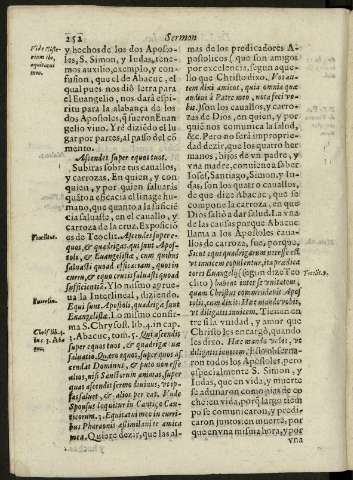 252
Sermon
y hechos de los dos Aposto-
les, S. Simon, y Iudas, tene-
mos auxilio, exemplo, y con-
fusion, que el de Abacuc, el
qual pues nos diò letra para
el Euangelio, nos darà espi-
ritu para la alabança de los
dos Apostoles, q̃ fueron Euan-
gelio viuo. Y re diziẽdo el lu-
gar por partes, al passo del co-
mento.
Ascendet super equos tuos.
Subiràs sobre tus cauallos,
y carrozas. En quien, y con
quien, y por quien saluaràs
quãto a eficacia el linage hu-
mano, que quanto a la sufici ẽ
cia saluaste, en el cauallo, y
carroza de la cruz. Exposiciõ
es de Teoclit. Ascendes supere-
quos, & quadrigas, qui sunt Apos-
toli, & Euangelistæ, cum quibus
saluasti quoad efficaciam, quos in
curru, & equo crucis saluasti quoad
sufficientiã. Y lo mismo agrue-
ua la Interlineal, diziendo.
Equi sunt Apostoli, quadriga sunt
Euangelistæ. Lo mismo confir-
ma S. Chrysost. lib. 4. in cap.
3. Abacuc, tom. 5. Quia ascendet
super equos tuos, & quadriga tua
saluatio. Quem equos, super quos as-
cendat Dominus, & puto non esse
alios, nisi Sanctorum animas, super
quas ascendit sermo diuinus, vt ip-
sas saluet, & alios per eas. Vnde
Sponsus loquitur in Cantico Can-
ticorum. 3. Equitatui meo in curri-
bus Pharaonis assimilaui te amica
mea. Quiere dezir, que las al-
mas de los predicadores A-
postolicos (que son amigos
por excelencia, segun aque-
llo que Christo dixo. Vos au-
tem dixi amicos, quia omnia quæ
audiui à Patre meo, nota feci vo-
bis.) son los cauallos, y carro-
zas de Dios, en quien, y por
quiẽ nos comunica la salud,
&c. Pero no serà impropric-
dad dezir, que los quatro her
manos, hijos de vn padre, y
vna madre, conuiene a saber
Iosef, Santiago, Simon, y Iu-
das, son los quatro cauallos,
de que dize Abacuc, que se
compone la carroza, en que
Dios saliò a dar salud. La vna
de las causas porque Abacuc
llama a los Apostoles caua-
llos de carroza, fue, porque,
Sicut equi quadrigarum inter se est
vt iunctem cohibentur, ita prædica
tores Euangelij (segun dize Teo
clito) habent inter se vnitatem,
quam Christus commendauit Apos
tolis, eum dixit. Hæc mando vobis,
vt diligatis inuicem. Tienen en-
tre si la vnidad, y amor que
Christo les encargò, quando
les dixo. Hæc mando vobis, vt
diligatis inuicem. Esto conserua-
ron todos los Apostoles, pero
especialmente S. Simon, y
Iudas, que en vida, y muerte
se ad unaron como guias de co
che: en vida, porq̃ largo tiem
po se comunicaron, y predi-
caron juntos: en muerte, por
que en vna misma hora, y por
vna